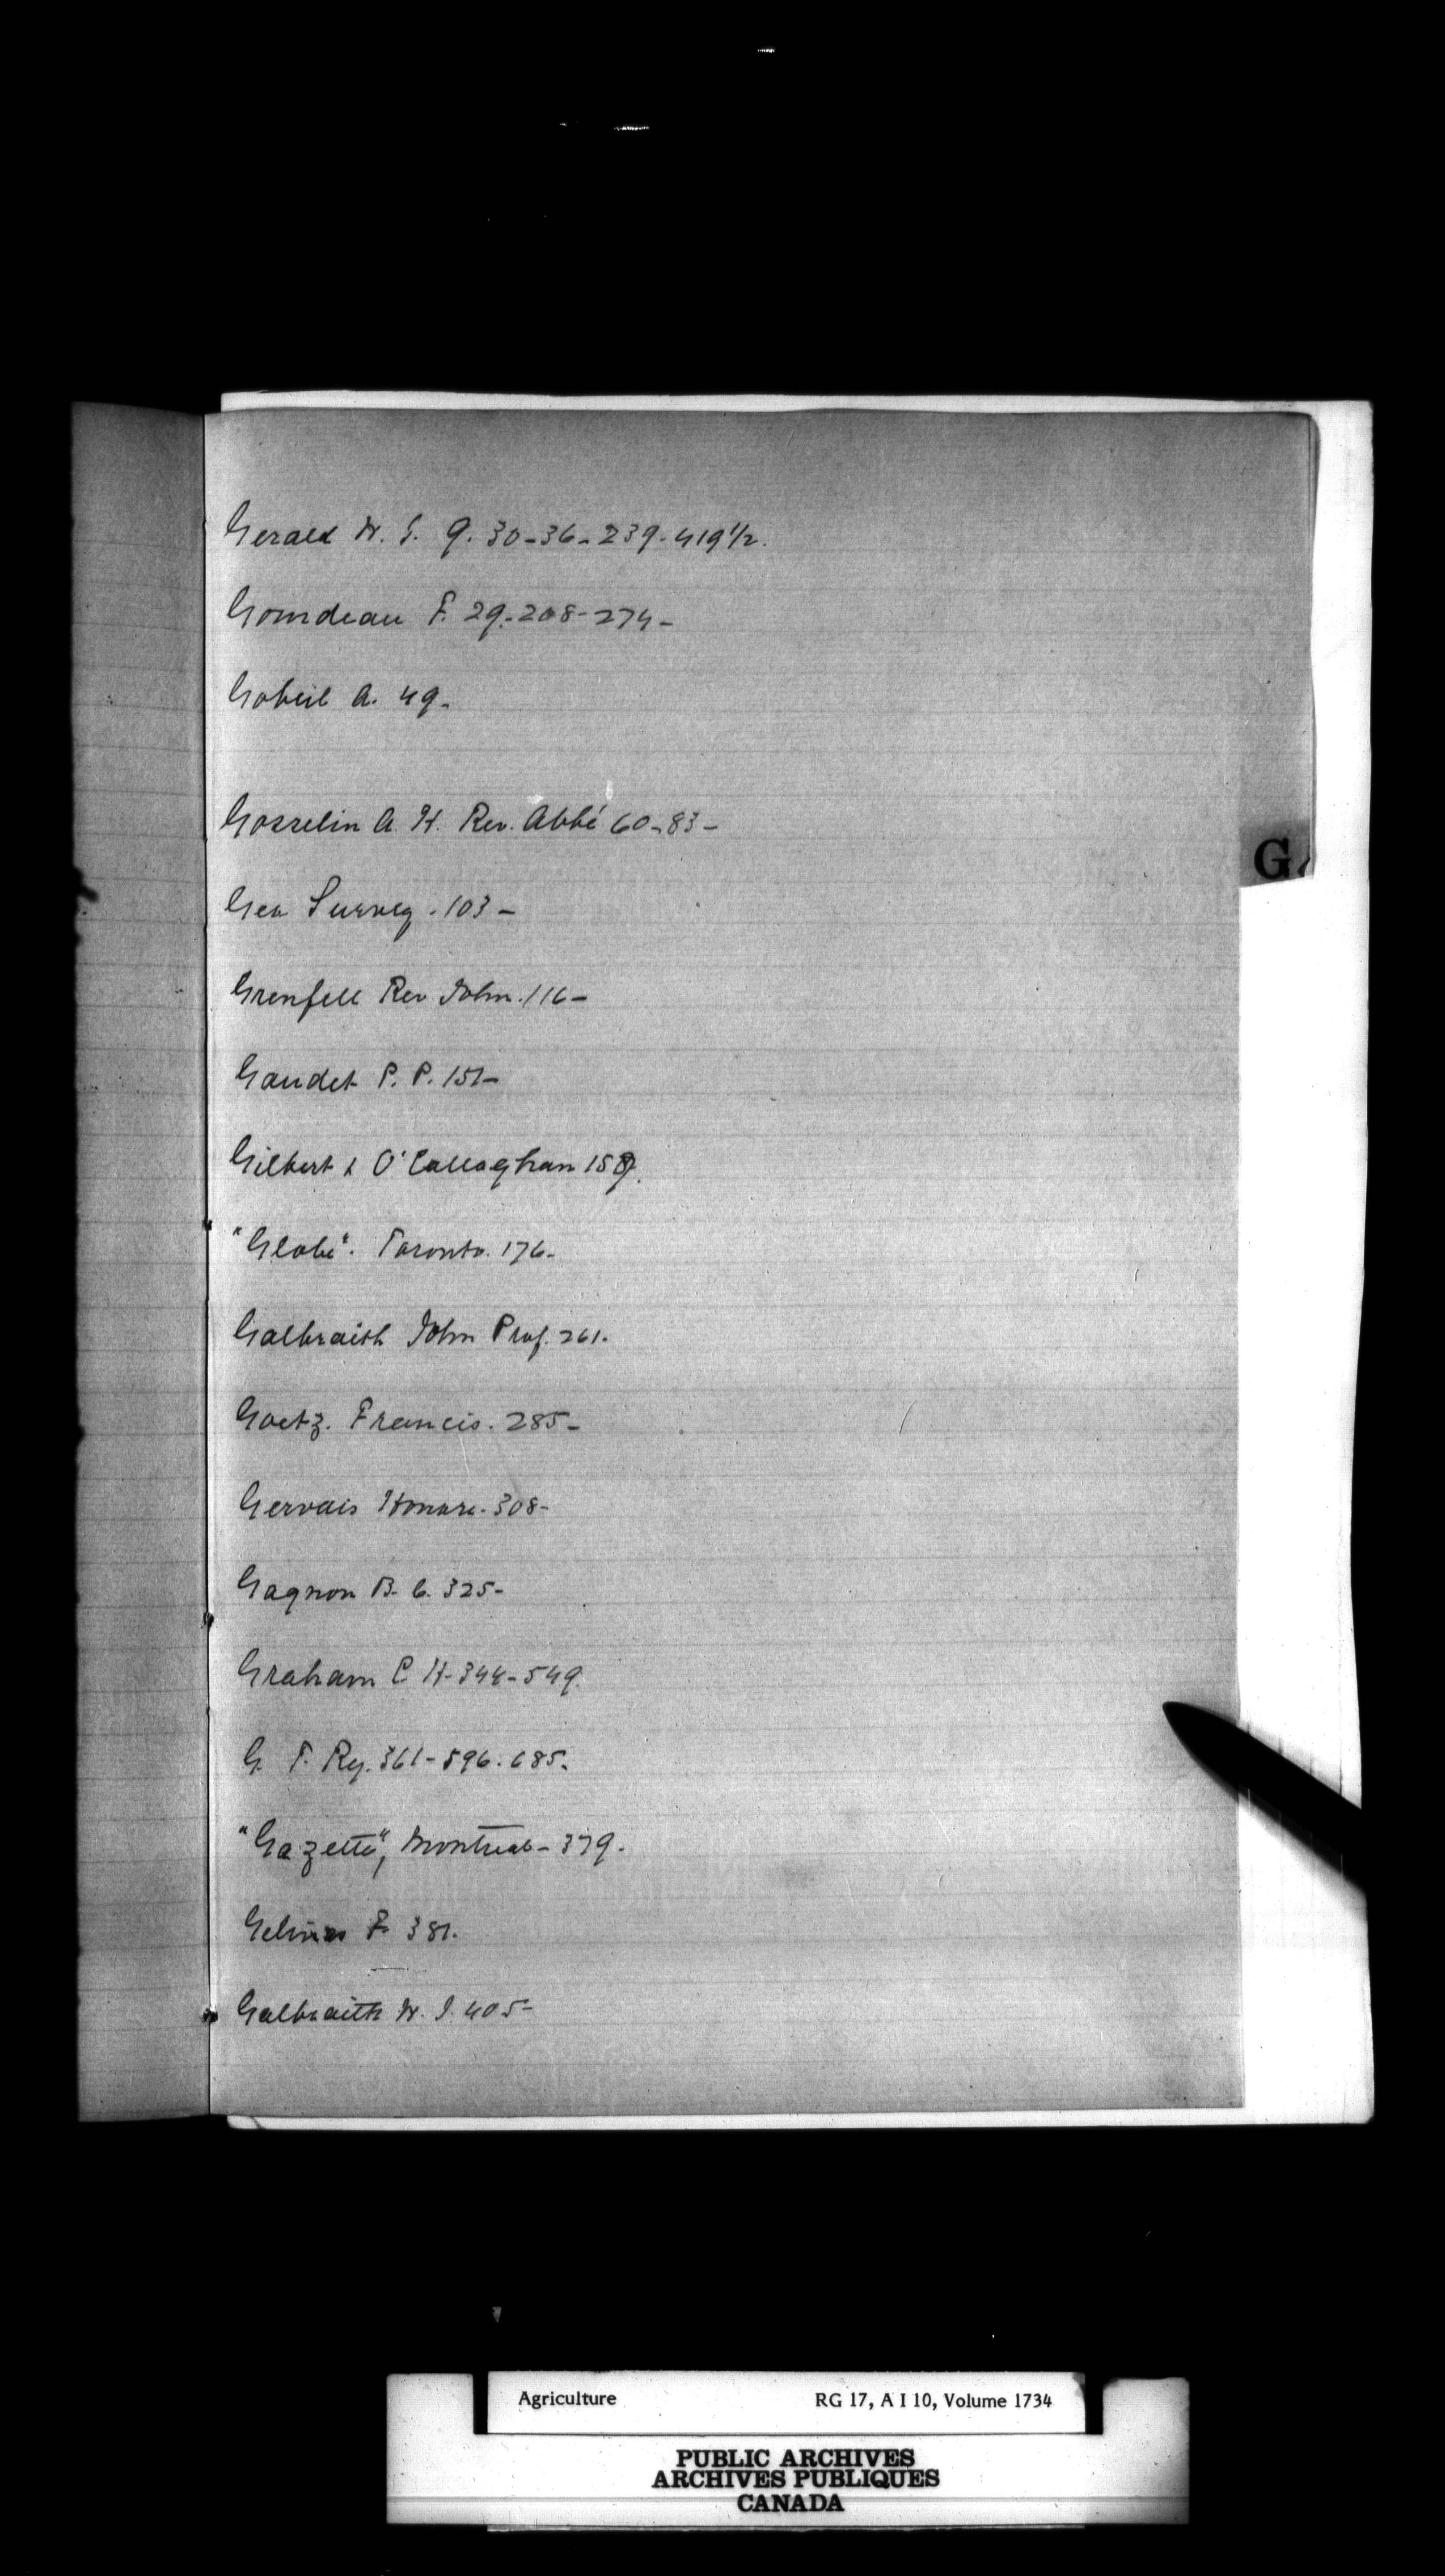 Gerald W. J. 9. 30-36-239-419½.
Gourdeau F. 29-208-274-
Gobeil A. 49-
Gosselin A. H. Rev. Abbé 60-83-
G
Geo Survey -103-
Grenfell Rev John. 116-
Gaudet P. P. 151-
Gilbert & O'Callaghan 159.
"Globe". Toronto. 176-
Galbraith John Prof. 261.
Goetz. Francis. 285-
Gervais Honoré-308-
Gagnon B. C. 325-
Graham C H-344-549.
G. T. Ry. 361-596-685.
"Gazette", Montreal-379.
Gelinas F. 381.
Galbraith W. J. 405-
Agriculture RG 17, A I 10, Volume 1734
PUBLIC ARCHIVES
ARCHIVES PUBLIQUES
CANADA